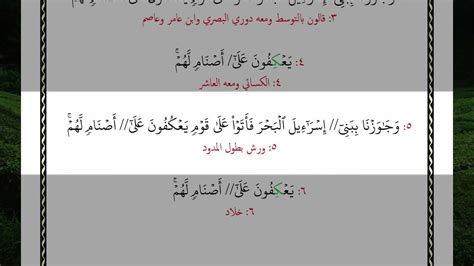 ٣: قالون بالتوسط ومعه دوري البصري وابن عامر وعاصم
٤: يَعْكِفُونَ عَلَىٰٓ// أَصْنَامٍ لَّهُمْۚ
٤: الكسائي ومعه العاشر
٥: وَجَٰوَزْنَا بِبَنِىٓ// إِسْرَٰٓءِيلَ ٱلْبَحْرَ فَأَتَوْا۟ عَلَىٰ قَوْمٍ يَعْكُفُونَ عَلَىٰٓ// أَصْنَامٍ لَّهُمْۚ
٥: ورش بطول المدود
٦: يَعْكِفُونَ عَلَىٰٓ// أَصْنَامٍ لَّهُمْۚ
٦: خلاد